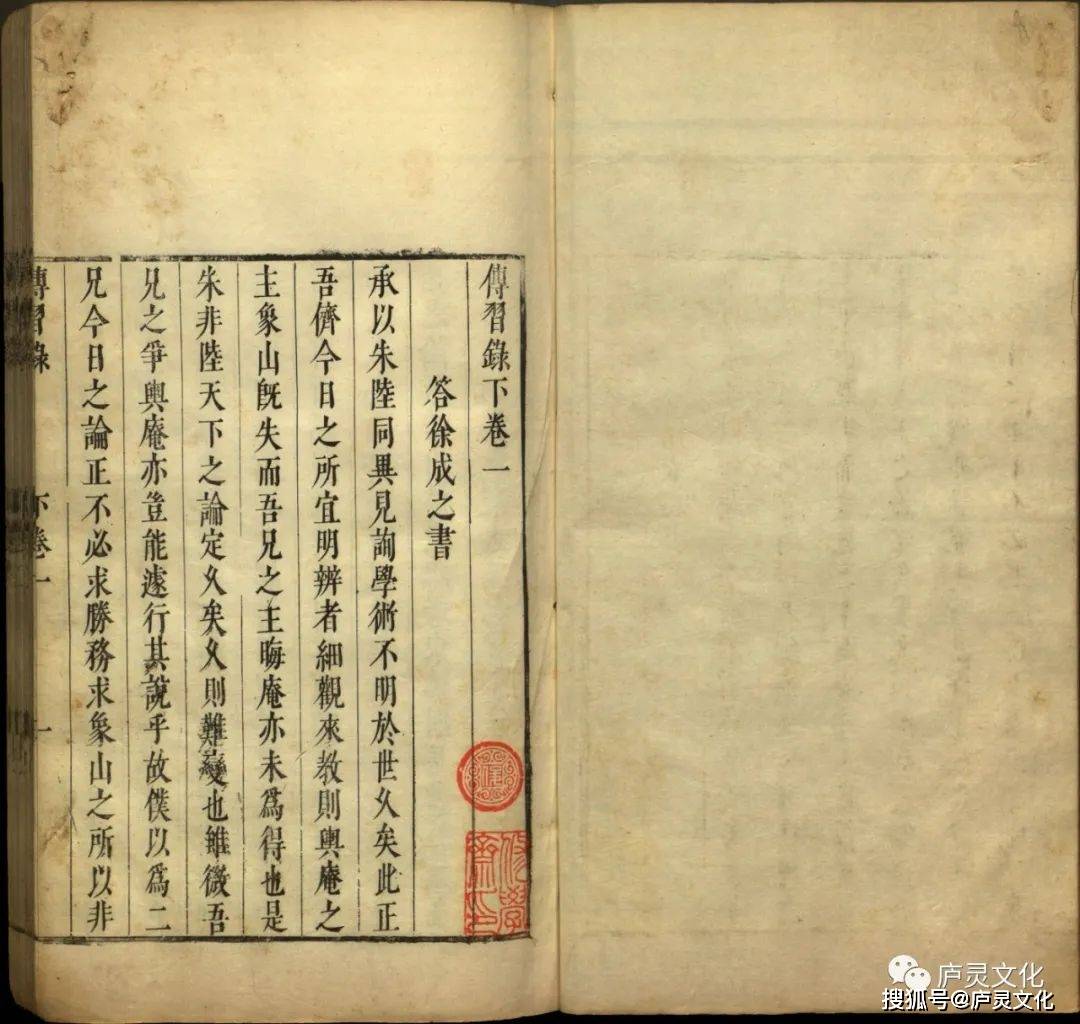 傳習錄下卷一
答徐成之書
承以朱陸同異見詢學術不明於世久矣此正
吾儕今日之所宜明辨者細觀來教則輿庵之
主象山既失而吾兄之主晦庵亦未爲得也是
朱非陸天下之論定久矣久則難變也雖微吾
兄之爭輿庵亦豈能遽行其說乎故僕以爲二
兄今日之論正不必求勝務求象山之所以非
傳習錄 下卷一 一
庐灵文化
搜狐号@庐灵文化